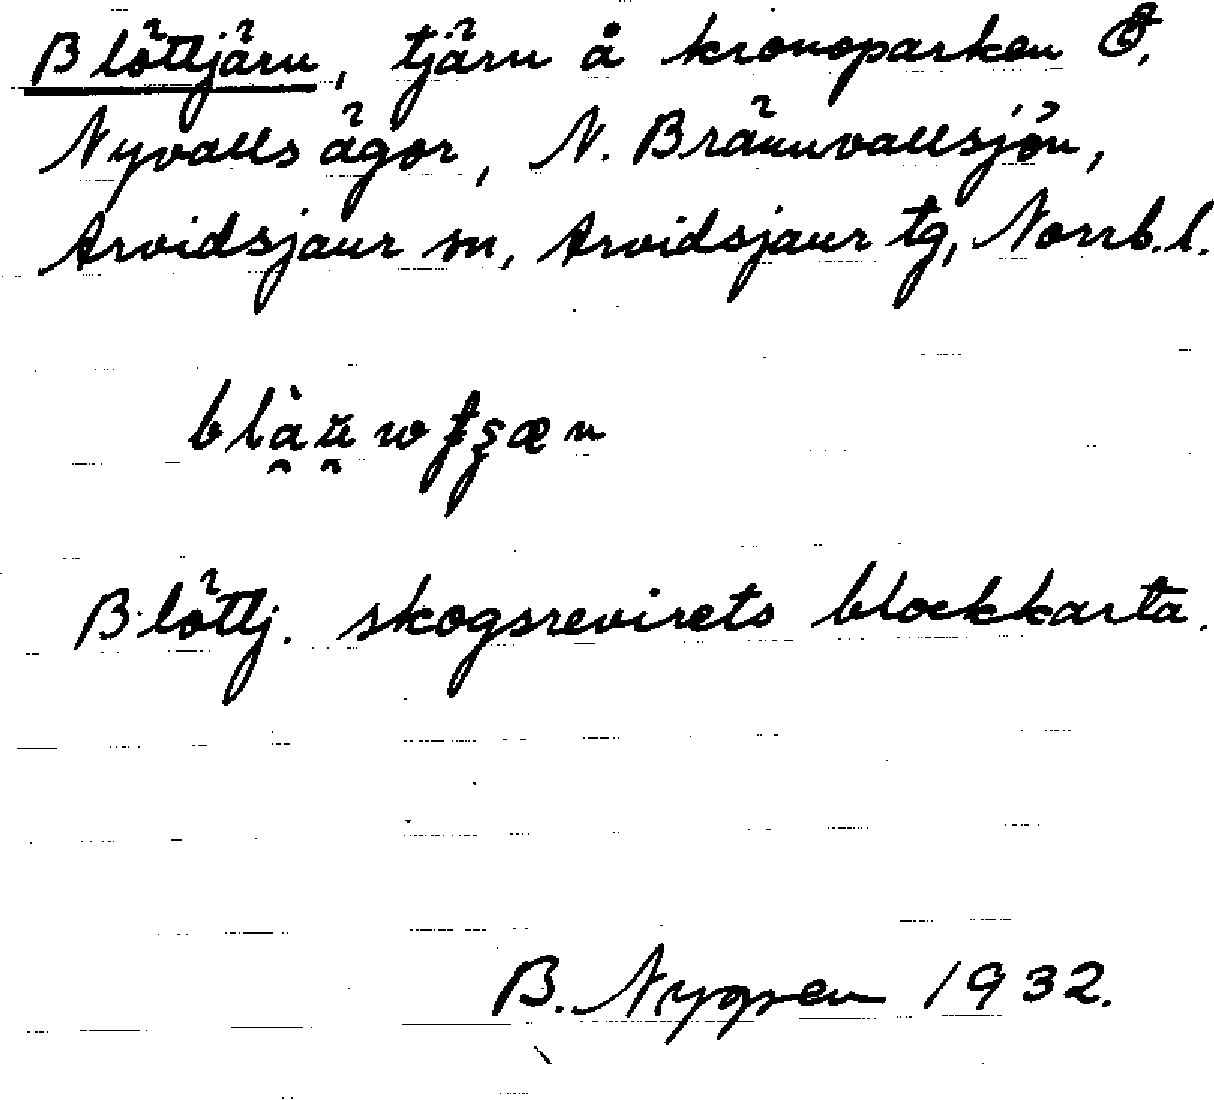 Blöttjärn, tjärn å kronoparken Ö.
Nyvalls ägor, N. Brännvallsjön,
Arvidsjaur sn, Arvidsjaur tg, Norrb.l.
Blöttj. skogsrevirets blockkarta.
B. Nygren 1932.